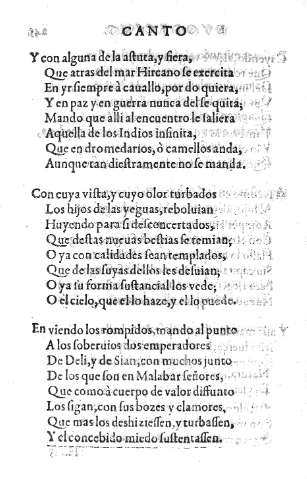 CANTO
Y con alguna de la astuta, y fiera,
Que atras del mar Hircano se exercita
En yr siempre à cauallo, por do quiera,
Y en paz y en guerra nunca del se quita;
Mando que alli al encuentro le saliera
Aquella de los Indios infinita,
Que en dromedarios, ò camellos anda,
Aunque tan diestramente no se manda.
Con cuya vista, y cuyo olor turbados
Los hijos de las yeguas, reboluian
Huyendo para si desconcertados,
Que destas nueuas bestias se temian;
O ya con calidades sean templados,
Que de las suyas dellos les desuian;
O ya su forma sustancial los vede,
O el cielo, que ello haze, y el lo puede.
En viendo los rompidos, mando al punto
A los soberuios dos emperadores
De Deli, y de Sian, con mucho junto
De los que son en Malabar señores,
Que como à cuerpo de valor diffunto
Los sigan, con sus bozes y clamores,
Que mas los deshiziessen, y turbassen,
Y el concebido miedo sustentassen.